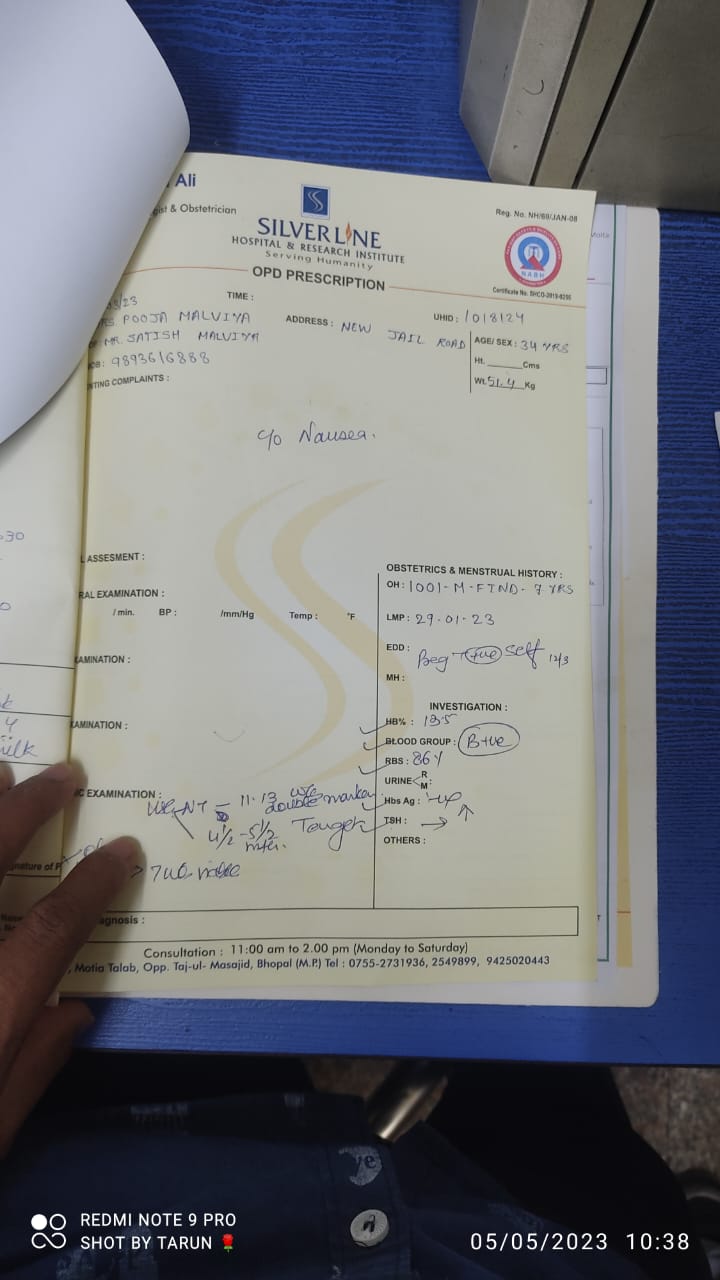 Ali
gist & Obstetrician
Reg. No. NH/69/JAN-08
SILVERLINE
HOSPITAL & RESEARCH INSTITUTE
Serving Humanity
NABH
OPD PRESCRIPTION
Certificate No. SHCO-2019-0250
/23
TIME :
UHID : 1018124
RS. POOJA MALVIYA
ADDRESS : NEW JAIL ROAD
AGE/ SEX : 34 YRS
MR. SATISH MALVIYA
Ht. Cms
OB: 9893616888
Wt. 51.4 Kg
NTING COMPLAINTS :
c/o Nausea.
ASSESMENT :
OBSTETRICS & MENSTRUAL HISTORY :
RAL EXAMINATION :
OH : 1001-M-FTND-7 YRS
/ min. BP : /mm/Hg Temp : °F
LMP : 29-01-23
EDD :
+ve self 12/3
XAMINATION :
MH :
INVESTIGATION :
XAMINATION :
HB% : 13.5
BLOOD GROUP : B+ve
RBS : 86
URINE R M
C EXAMINATION :
NT - 11-13 double marker
Hbs Ag :
4 1/2 - 5 1/2
TSH : →
OTHERS :
ignature of P
agnosis :
Consultation : 11:00 am to 2.00 pm (Monday to Saturday)
, Motia Talab, Opp. Taj-ul- Masajid, Bhopal (M.P.) Tel : 0755-2731936, 2549899, 9425020443
REDMI NOTE 9 PRO
SHOT BY TARUN 🌹
05/05/2023 10:38